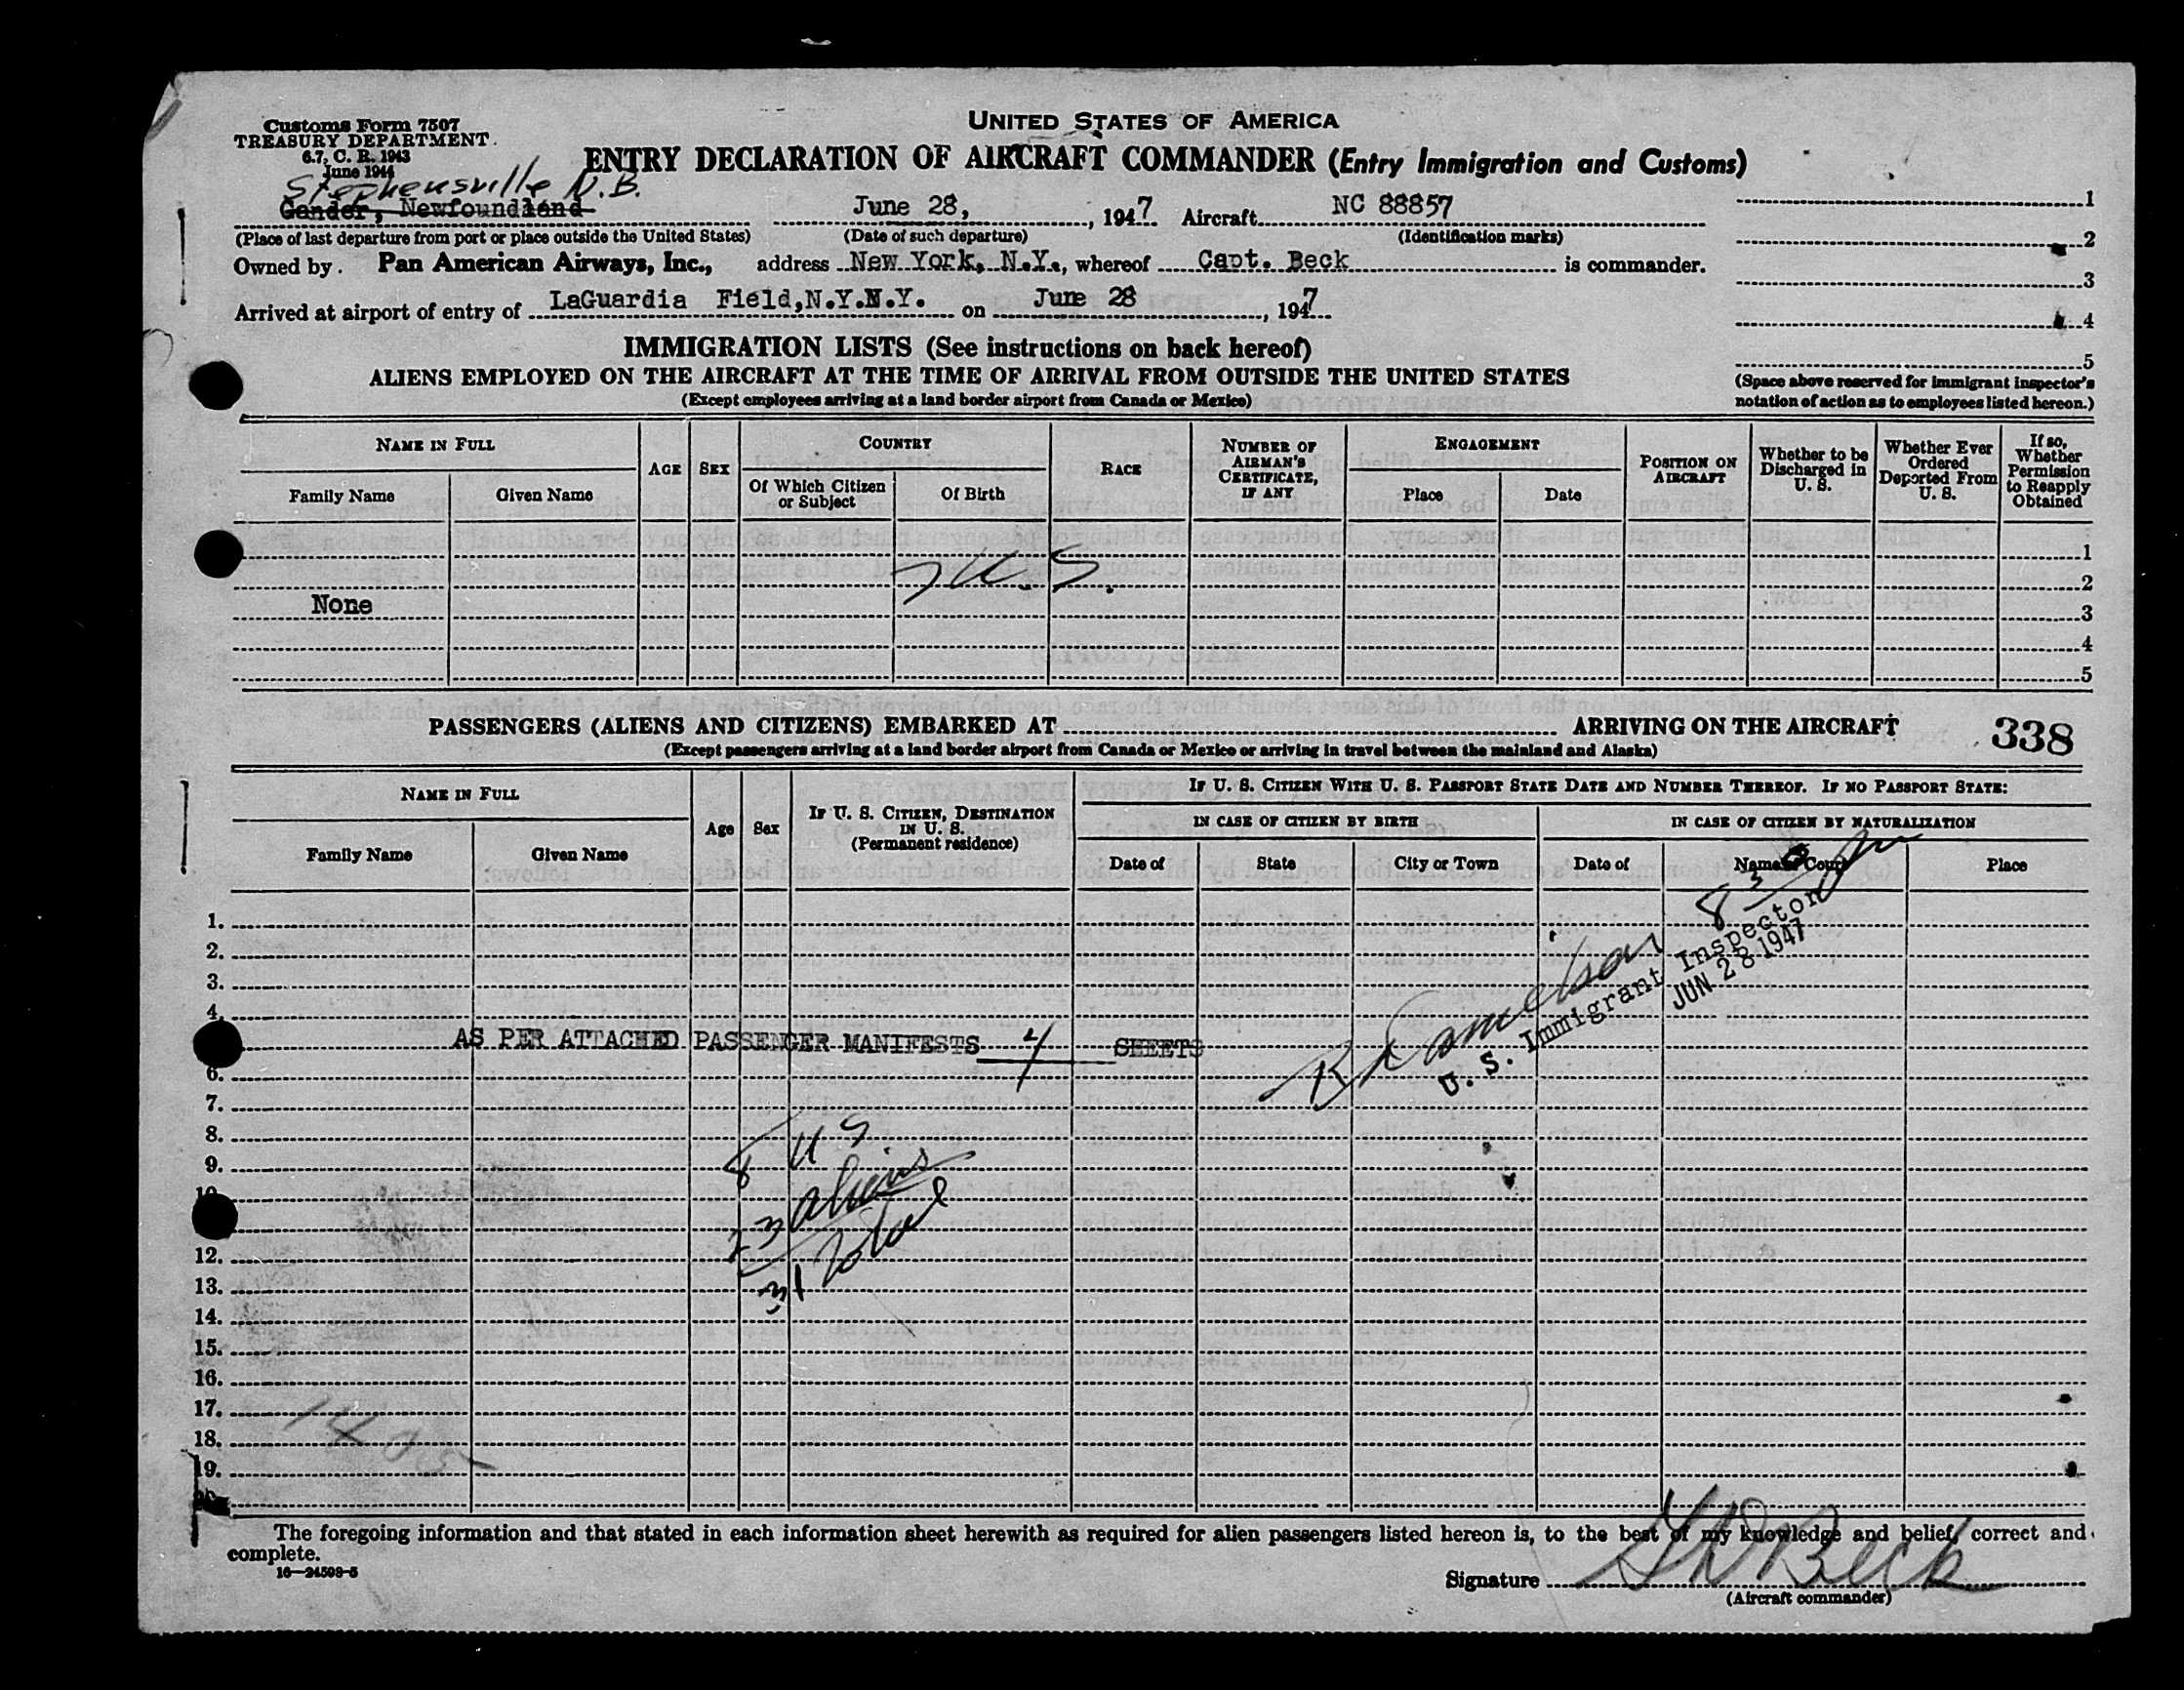 UNITED STATES OF AMERICA
Customs Form 7507
TREASURY DEPARTMENT
6.7, C. R. 1943
June 1944
ENTRY DECLARATION OF AIRCRAFT COMMANDER (Entry Immigration and Customs)
Stephensville N.B.
Gander, Newfoundland June 28, , 1947 Aircraft NC 88857
(Place of last departure from port or place outside the United States) (Date of such departure) (Identification marks)
Owned by Pan American Airways, Inc., address New York, N.Y., whereof Capt. Beck is commander.
Arrived at airport of entry of LaGuardia Field,N.Y.N.Y. on June 28 , 1947
1
2
3
4
5
(Space above reserved for immigrant inspector's
notation of action as to employees listed hereon.)
IMMIGRATION LISTS (See instructions on back hereof)
ALIENS EMPLOYED ON THE AIRCRAFT AT THE TIME OF ARRIVAL FROM OUTSIDE THE UNITED STATES
(Except employees arriving at a land border airport from Canada or Mexico)
NAME IN FULL
Family Name Given Name
AGE SEX
COUNTRY
Of Which Citizen or Subject Of Birth
RACE
NUMBER OF AIRMAN'S CERTIFICATE, IF ANY
ENGAGEMENT
Place Date
POSITION ON AIRCRAFT
Whether to be Discharged in U. S.
Whether Ever Ordered Deported From U. S.
If so, Whether Permission to Reapply Obtained
1
7 U.S. 2
None 3
4
5
PASSENGERS (ALIENS AND CITIZENS) EMBARKED AT ARRIVING ON THE AIRCRAFT 338
(Except passengers arriving at a land border airport from Canada or Mexico or arriving in travel between the mainland and Alaska)
NAME IN FULL
Family Name Given Name
Age Sex
IF U. S. CITIZEN, DESTINATION IN U. S.
(Permanent residence)
IF U. S. CITIZEN WITH U. S. PASSPORT STATE DATE AND NUMBER THEREOF. IF NO PASSPORT STATE:
IN CASE OF CITIZEN BY BIRTH IN CASE OF CITIZEN BY NATURALIZATION
Date of State City or Town Date of Name of Court Place
830
1.
2.
3.
4.
U. S. Immigrant Inspector
JUN 28 1947
AS PER ATTACHED PASSENGER MANIFESTS 4 SHEETS
6.
7.
8. 8 US
9.
10. 23 aliens
12. 31 total
13.
14.
15.
16.
17. 1405
18.
19.
20.
The foregoing information and that stated in each information sheet herewith as required for alien passengers listed hereon is, to the best of my knowledge and belief, correct and
complete.
16—24598-5
Signature Beck
(Aircraft commander)